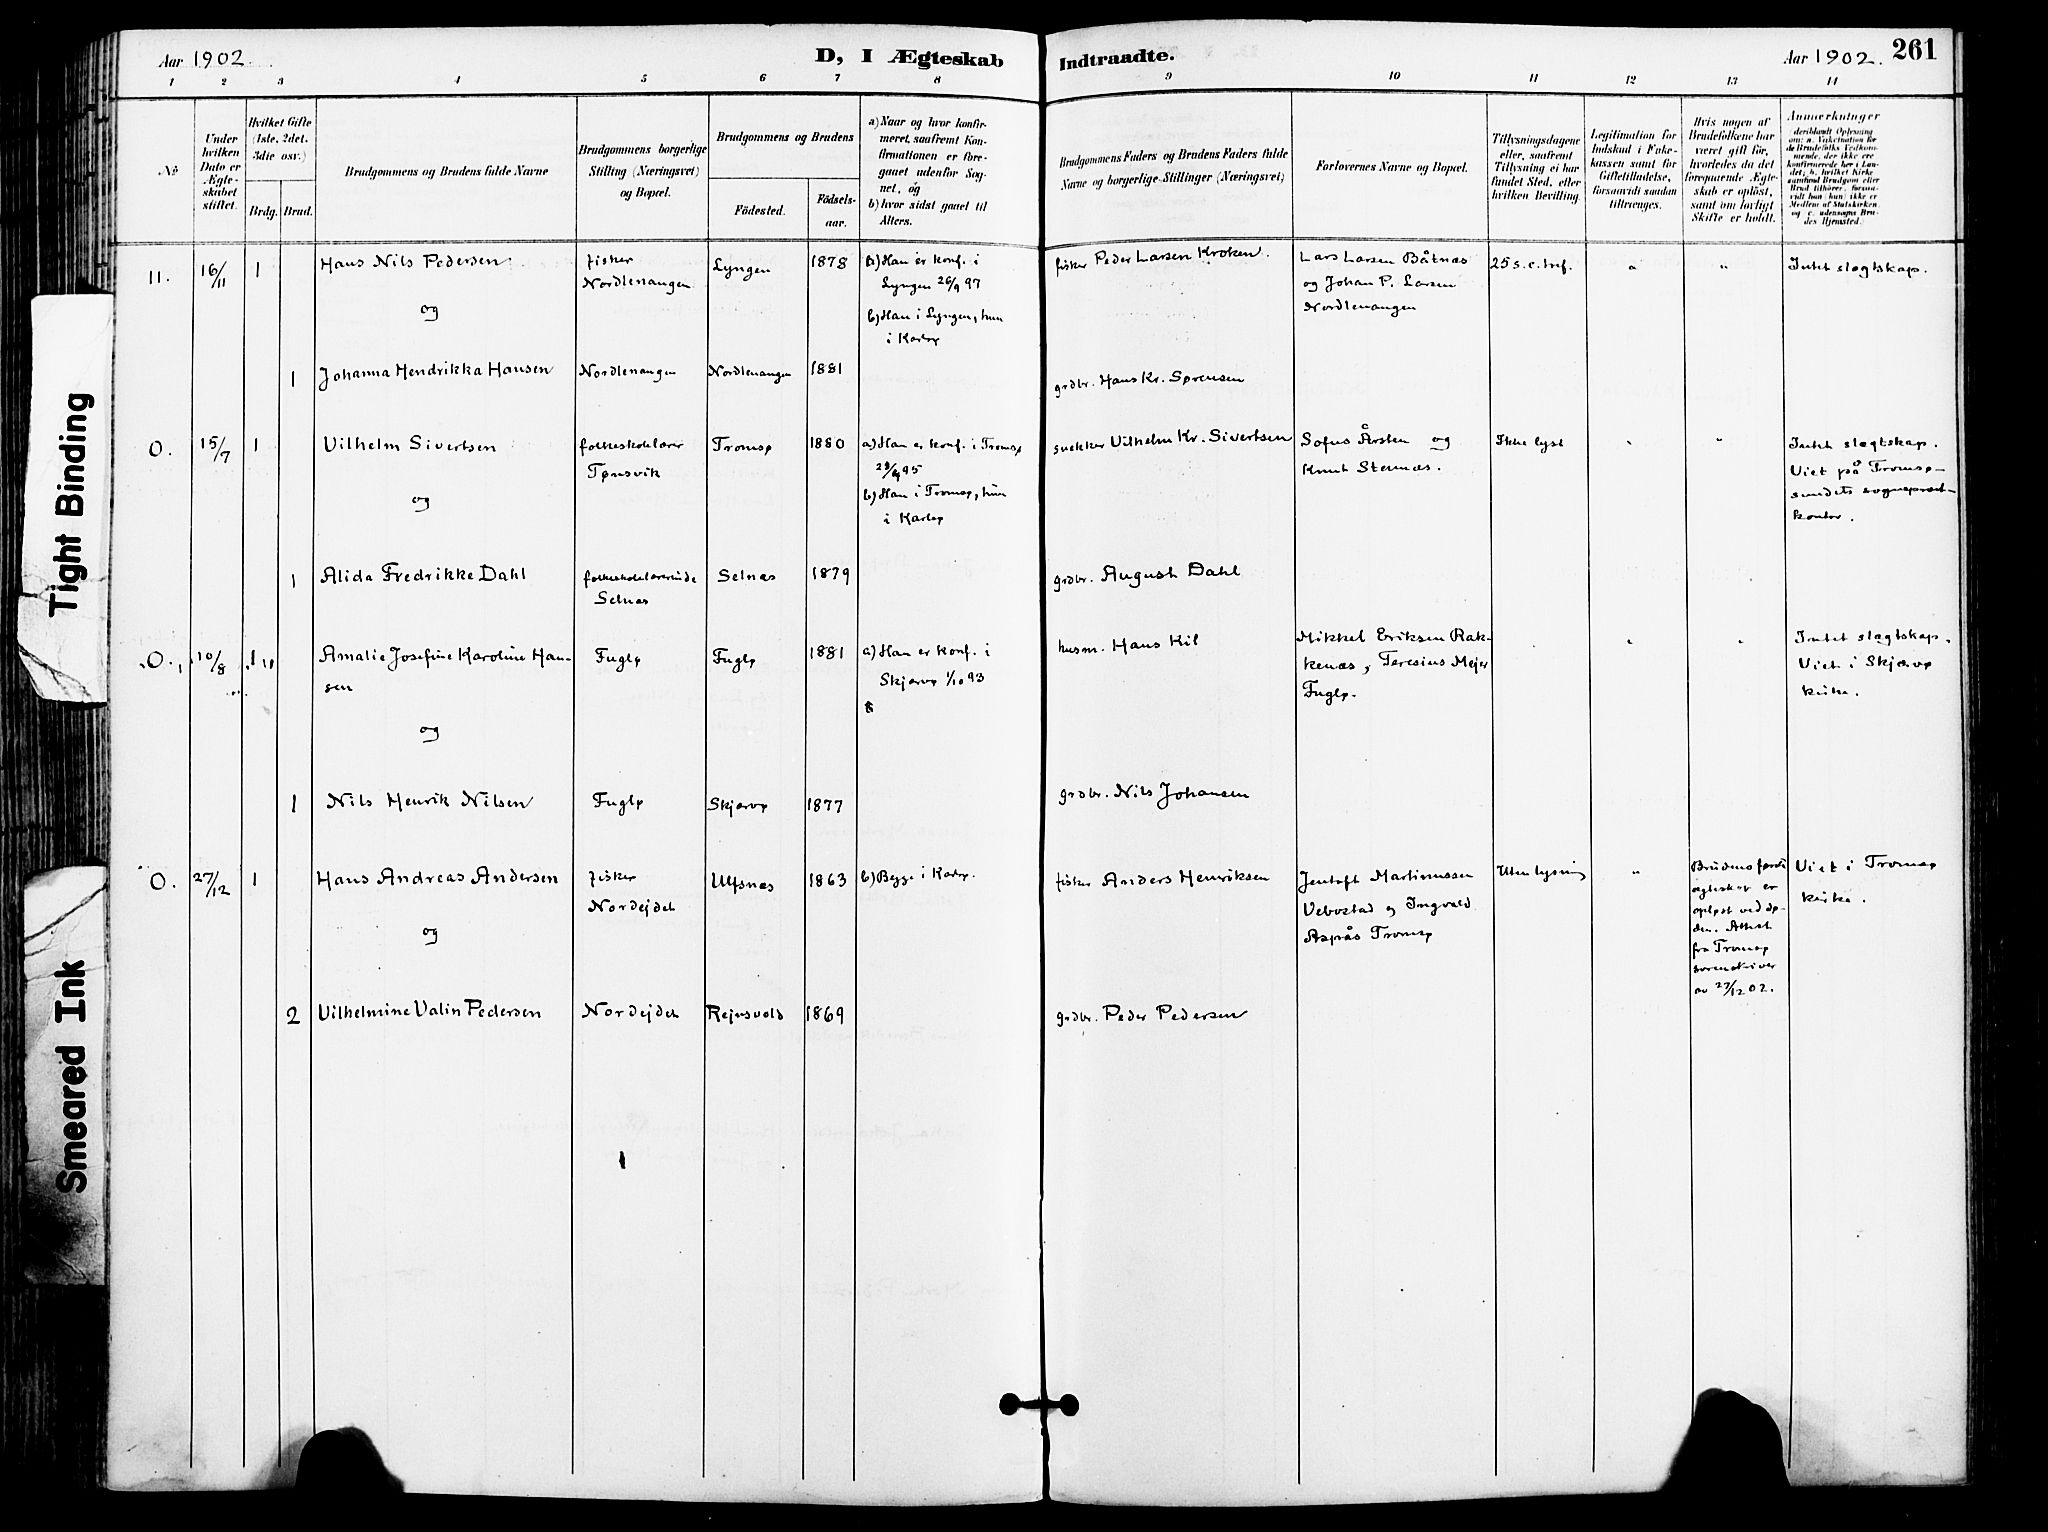 Aar 1902.
D, I Ægteskab
Indtraadte.
Aar 1902. 261
1 2 3 4 5 6 7 8 9 10 11 12 13 14
No.
Under
hvilken
Dato er
Ægte-
skabet
stiftet.
Hvilket Gifte
(1ste, 2det,
3die osv.)
Brdg. Brud.
Brudgommens og Brudens fulde Navne
Brudgommens borgerlige
Stilling (Næringsvei)
og Bopæl.
Brudgommens og Brudens
Fødested.
Fødsels-
aar.
a) Naar og hvor konfir-
meret, saafremt Kon-
firmationen er fore-
gaaet udenfor Sog-
net, og
b) hvor sidst gaaet til
Alters.
Brudgommens Faders og Brudens Faders fulde
Navne og borgerlige Stillinger (Næringsvei)
Forlovernes Navne og Bopæl.
Tillysningsdagene
eller, saafremt
Tillysning ei har
fundet Sted, efter
hvilken Bevilling.
Legitimation for
Indskud i Enke-
kassen samt for
Giftetilladelse,
forsaavidt saadan
tiltrænges.
Hvis nogen af
Brudefolkene har
været gift før,
hvorledes da det
foregaaende Ægte-
skab er opløst,
samt om lovligt
Skifte er holdt.
Anmerkninger
deriblandt Oplysning
om: a. Vakcination for
de Brudefolks Vedkom-
mende, der ikke ere
konfirmerede her i Lan-
det; b. hvilket Kirke
samfund Brudgom eller
Brud tilhører, forsaa-
vidt han (hun) ikke er
Medlem af Statskirken
og c. udensogns Bru-
des Hjemsted.
11. 16/11 1 Hans Nils Pedersen
fisker
Nordlenangen
Lyngen 1878
a) Han er konf. i
Lyngen 26/9 97
b) Han i Lyngen, hun
i Karlsø
fisker Peder Larsen Kroken.
Lars Larsen Båtnæs
og Johan P. Larsen
Nordlenangen
25 s. e. tref. " "
Intet slegtskap.
og
1 Johanna Hendrikka Hansen Nordlenangen Nordlenangen 1881
grdbr. Hans Kr. Sørensen
0. 15/7 1 Vilhelm Sivertsen
folkeskolelærer
Tønsvik
Tromsø 1880
a) Han er konf. i Tromsø
29/9 95
b) Han i Tromsø, hun
i Karlsø
snekker Vilhelm Kr. Sivertsen
Sofus Årsten og
Knut Stennæs.
Ikke lyst " "
Intet slegtskap.
Viet på Tromsø-
sundets sogneprest-
kontor.
og
1 Alida Fredrikke Dahl
folkeskolelærerinde
Selnæs
Selnæs 1879
grdbr. August Dahl
0. 10/8 1 Amalie Josefine Karoline Han-
sen
Fuglø Fuglø 1881
a) Han er konf. i
Skjærvø 1/10 93
b
husm. Hans Kil
Mikkel Eriksen Rak-
kenæs, Teresius Mejer
Fuglø.
" " "
Intet slegtskap.
Viet i Skjærvø
kirke.
og
1 Nils Henrik Nilsen Fuglø Skjærvø 1877
grdbr. Nils Johansen
0. 27/12 1 Hans Andreas Andersen
fisker
Nordejdet
Ulfsnæs 1863 b) Begge i Karlsø.
fisker Anders Henriksen
Jentoft Martinussen
Vebostad og Ingvald
Aspås Tromsø
Uten lysning "
Brudens første
egteskap er
opløst ved dø-
den. Attest
fra Tromsø
sorenskriver
av 27/12 02.
Viet i Tromsø
kirke.
og
2 Vilhelmine Valin Pedersen Nordejdet Rejnsvold 1869
grdbr. Peder Pedersen
Tight Binding
Smeared Ink